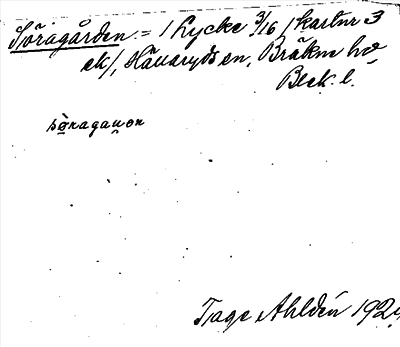 Sörågården = / Lycke 3/16 / kartnr 3
ek/, Hällaryds sn, Bräkne hd
Blek. l.
sönagauen
Tage Ahldén 192